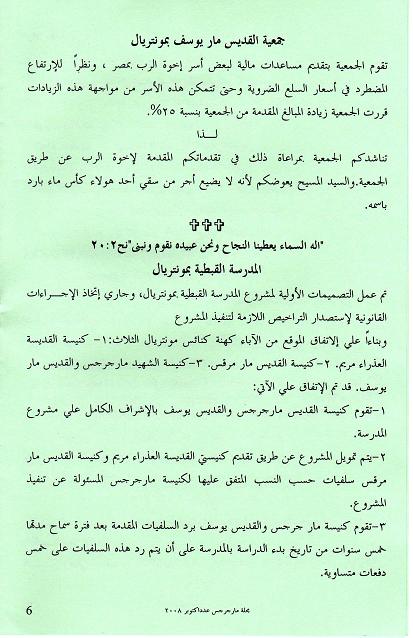 جمعية القديس مار يوسف بمونتريال
تقوم الجمعية بتقديم مساعدات مالية لبعض أسر إخوة الرب بمصر ، ونظراً للإرتفاع
المضطرد في أسعار السلع الضروية وحتى تتمكن هذه الأسر من مواجهة هذه الزيادات
قررت الجمعية زيادة المبالغ المقدمة من الجمعية بنسبة ٢٥%.
لـــذا
تناشدكم الجمعية بمراعاة ذلك في تقدماتكم المقدمة لإخوة الرب عن طريق
الجمعية.والسيد المسيح يعوضكم لأنه لا يضيع أجر من سقي أحد هولاء كأس ماء بارد
باسمه.
✞✞✞
"اله السماء يعطينا النجاح ونحن عبيده نقوم ونبنى"نح٢٠:٢
المدرسة القبطية بمونتريال
تم عمل التصميمات الأولية لمشروع المدرسة القبطية بمونتريال، وجاري إتخاذ الإجــراءات
القانونية لإستصدار التراخيص اللازمة لتنفيذ المشروع
وبناءاً علي الإتفاق الموقع من الآباء كهنة كنائس مونتريال الثلاث:١- كنيسة القديسة
العذراء مريم. ٢-كنيسة القديس مار مرقس. ٣-كنيسة الشهيد مارجرجس والقديس مار
يوسف. قد تم الإتفاق علي الآتي:
١-تقوم كنيسة القديس مارجرجس والقديس يوسف بالإشراف الكامل علي مشروع
المدرسة.
٢-يتم تمويل المشروع عن طريق تقديم كنيستي القديسة العذراء مريم وكنيسة القديس مار
مرقس سلفيات حسب النسب المتفق عليها لكنيسة مارجرجس المسئولة عن تنفيذ
المشروع.
٣-تقوم كنيسة مار جرجس والقديس يوسف برد السلفيات المقدمة بعد فترة سماح مدتها
خمس سنوات من تاريخ بدء الدراسة بالمدرسة على أن يتم رد هذه السلفيات على خمس
دفعات متساوية.
مجلة مارجرجس عدداكتوبر ٢٠٠٨
6